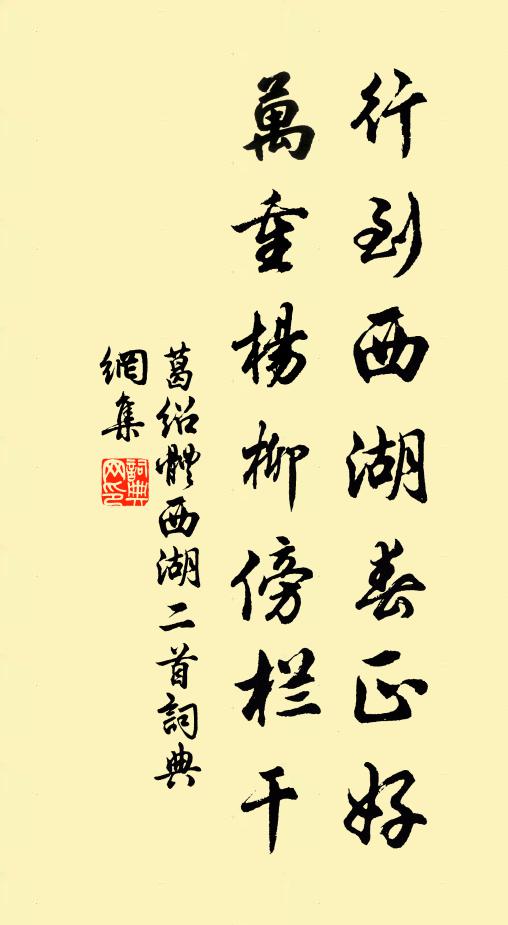 行到西湖春正好
萬重楊柳傍栏干
葛绍體西湖二首詞典
網集
詞典
网印